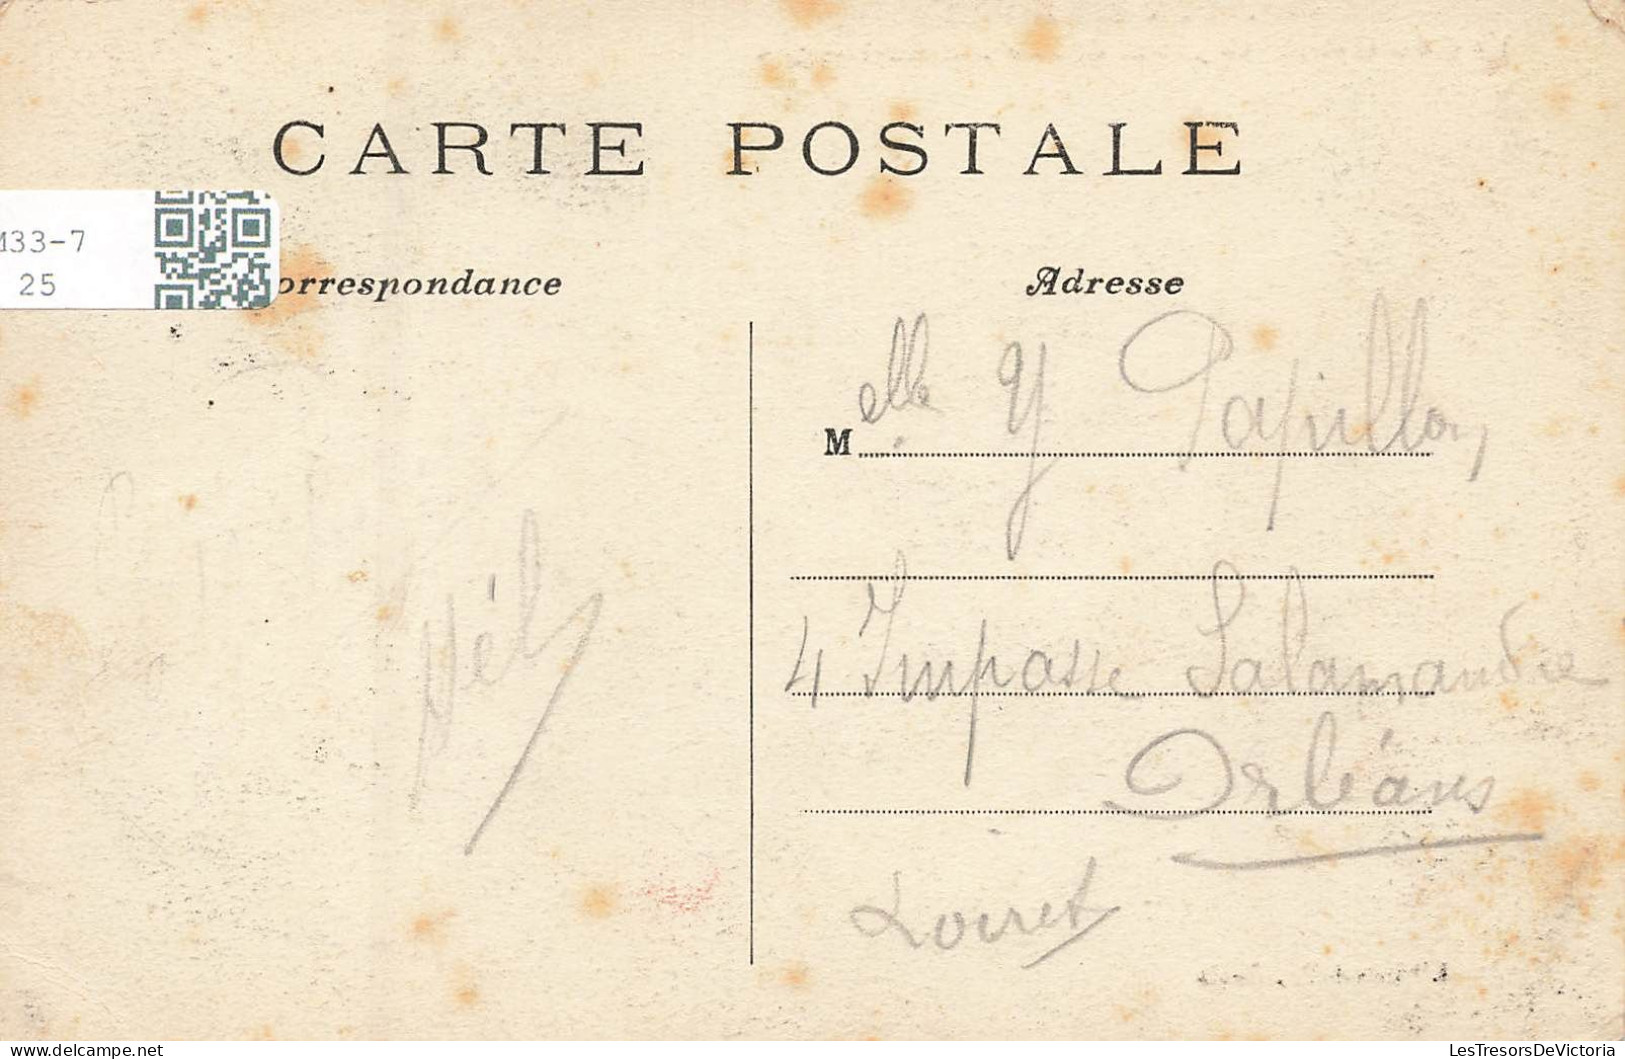 CARTE POSTALE
M33-7
25
orrespondance
Adresse
Melle Y Papillon
4 Impasse Salamandre
Orléans
Loiret
www.delcampe.net
LesTresorsDeVictoria